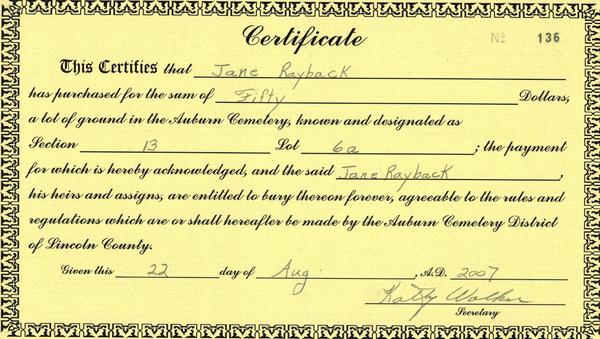 Certificate
No 136
This Certifies that Jane Rayback
has purchased for the sum of Fifty Dollars,
a lot of ground in the Auburn Cemetery, known and designated as
Section 13 Lot 6a ; the payment
for which is hereby acknowledged, and the said Jane Rayback ,
his heirs and assigns, are entitled to bury thereon forever, agreeable to the rules and
regulations which are or shall hereafter be made by the Auburn Cemetery District
of Lincoln County.
Given this 22 day of Aug. , A.D. 2007
Katy Walker
Secretary